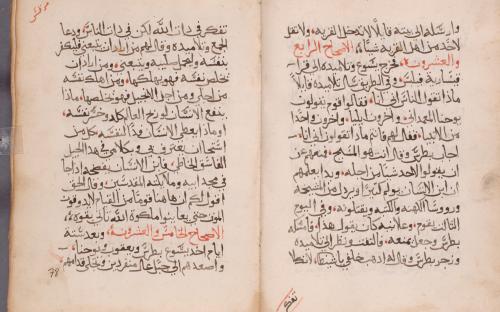 وارسله الى بيته قايلا لا تدخل القريه ولا تقل
لاحد من اهل القريه شيئا الاصحاح الرابع
والعشرون فخرج يسوع وتلاميذه الى قرا
قيساريه فيلبس وفي الطريق سال تلاميذه قايلا
ماذا تقول الناس اني انا فقالوا قوم يقولون
يوحنا المعمداني واخرون ايليا واخرون واحدا
من الانبيا فقال لهم فانتم ماذا تقولون اني انا
اجاب بطرس وقال انت هو المسيح فنهاهم عن
ان يقولوا لاحد شيئا من اجله وبدا يعلمهم
ان ابن الانسان يولم كثيرا ويرذل من الشيخه
وروسا الكهنه والكتبه ويقتلونه وفي اليوم
الثالث يقوم وعلانيه كان يقول هذا فامسكه
بطرس وجعل يمنعه فالتفت ونظر الى تلاميذه
وزجر بطرس وقال له اذهب خلفي يا شيطان لانك لا
تفكر
تفكر في ذات الله لكن في ذات الناس ودعا
الجمع وتلاميذه وقال لهم من اراد ان يتبعني فليكفر
بنفسه ويحمل صليبه ويتبعني ومن اراد ان
يخلص نفسه فهو يهلكها ومن اهلك نفسه
من اجلي ومن اجل الانجيل فهو يخلصها ماذا
ينفع الانسان لو ربح العالم كله وخسر نفسه
او ماذا يعطي الانسان فدا لنفسه كل من
استحا ان يعترف بي وبكلامي في هذا الجيل
الفاسق الخاطي فابن الانسان يفضحه اذا جا
في مجد ابيه وملايكته المقدسين وقال الحق
اقول لكم ان هاهنا قوما من القيام لا يذوقون
الموت حتى يعاينوا ملكوة الله تاتي بقوه
الاصحاح الخامس والعشرون وبعد ستة
ايام اخذ يسوع بطرس ويعقوب ويوحنا
واصعدهم الى جبل عال منفردين وتجلى قدامهم
78